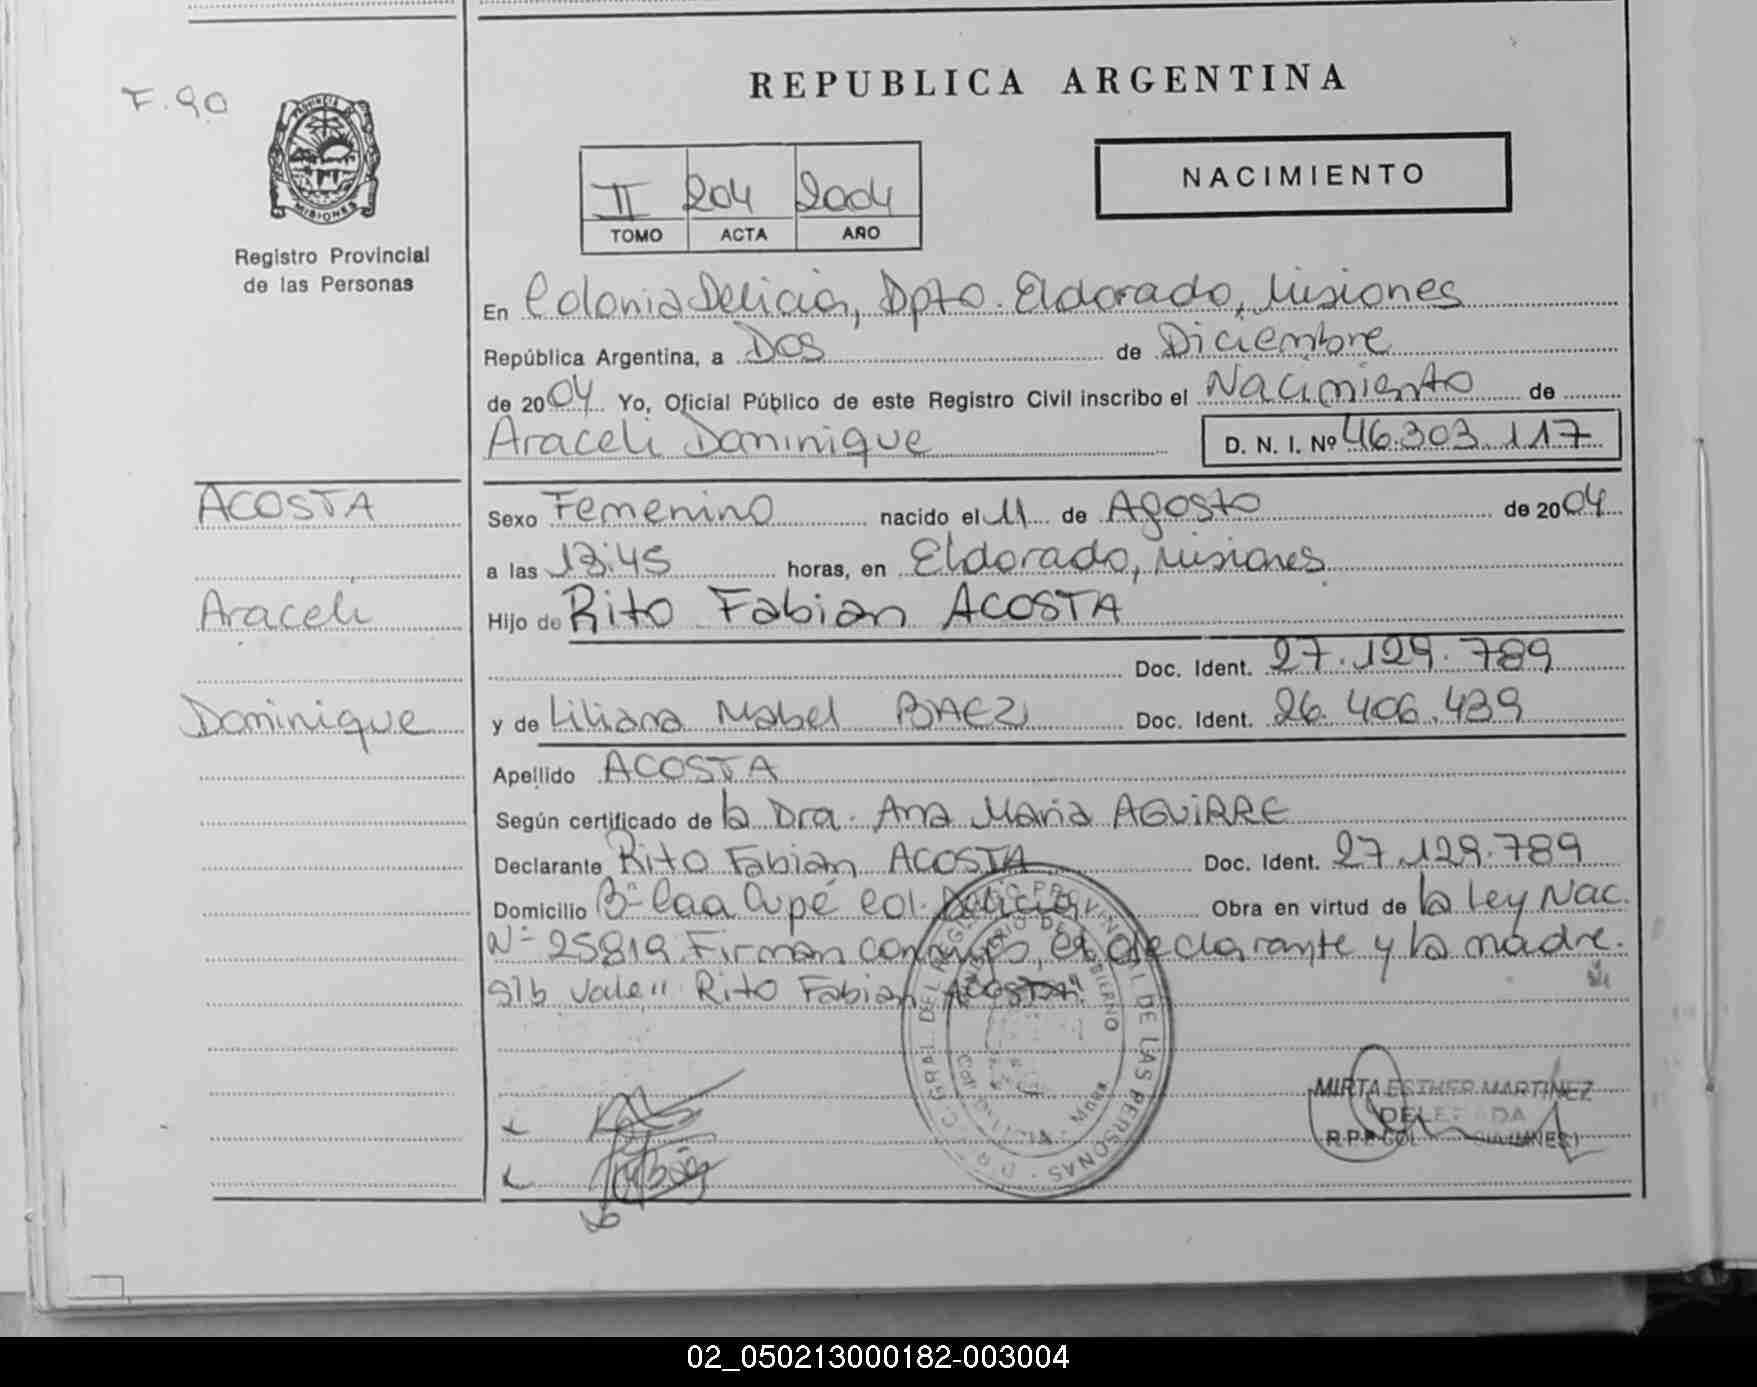 REPUBLICA ARGENTINA
F. 90
PROVINCIA DE
MISIONES
Registro Provincial
de las Personas
II 204 2004
TOMO ACTA AÑO
NACIMIENTO
En Colonia Delicia, Dpto. Eldorado, Misiones
República Argentina, a Dos de Diciembre
de 2004 Yo, Oficial Público de este Registro Civil inscribo el Nacimiento de
Araceli Dominique D. N. I. Nº 46.303.117
ACOSTA
Araceli
Dominique
Sexo Femenino nacido el 11 de Agosto de 2004
a las 13:45 horas, en Eldorado, Misiones
Hijo de Rito Fabian ACOSTA
Doc. Ident. 27.129.789
y de Liliana Mabel BAEZ Doc. Ident. 26.406.439
Apellido ACOSTA
Según certificado de la Dra. Ana Maria AGUIRRE
Declarante Rito Fabian ACOSTA Doc. Ident. 27.129.789
Domicilio Bº Caa Cupé Col. Delicia Obra en virtud de la Ley Nac.
Nº 25819. Firman conmigo, el declarante y la madre.
s/b Vale" Rito Fabian ACOSTA"
MIRTA ESTHER MARTINEZ
DELEGADA
02_050213000182-003004